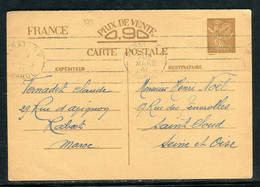 FRANCE
PRIX DE VENTE
0,90
CARTE POSTALE
EXPÉDITEUR
DESTINATAIRE
MARS
Claude
29 Rue
Rabat
Maroc
Monsieur Henri Noël
9 Rue des
Saint Cloud
Seine et Oise